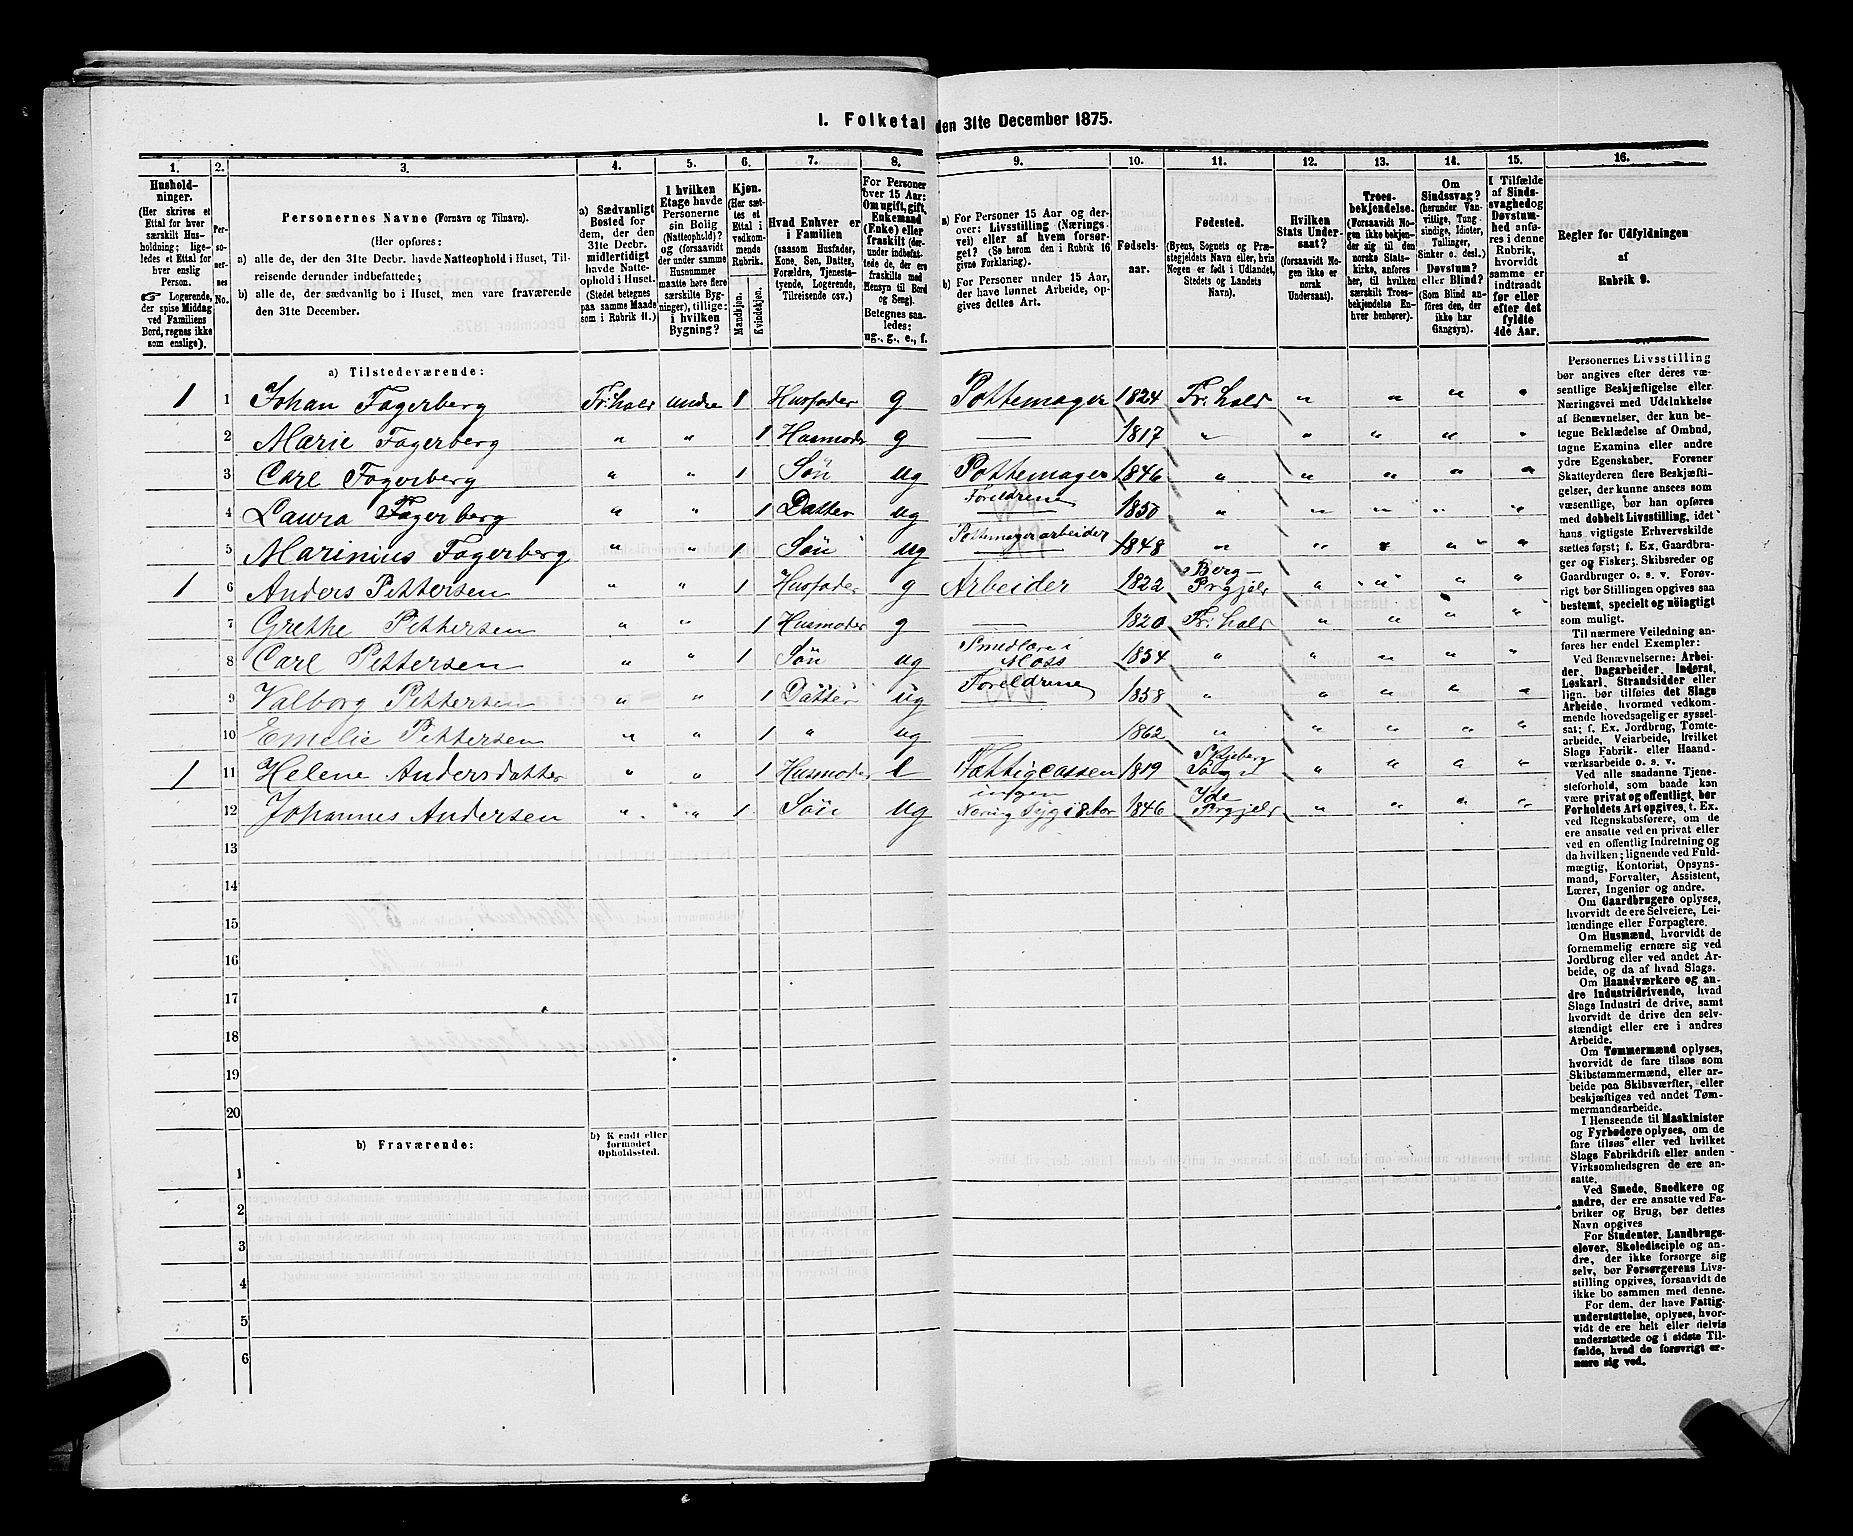 I. Folketal den 31te December 1875.
1. 2. 3. 4. 5. 6. 7. 8. 9. 10. 11. 12. 13. 14. 15. 16.
Husholdninger.
(Her skrives et
Ettal for hver
særskilt Husholdning;
ligeledes et Ettal for
hver enslig
Person.
☞ Logerende,
der spise Middag
ved Familiens
Bord, regnes ikke
som enslige).
Personernes No.
Personernes Navne (Fornavn og Tilnavn).
(Her opføres:
a) alle de, der den 31te Decbr. havde Natteophold i Huset, Tilreisende derunder indbefattede;
b) alle de, der sædvanlig bo i Huset, men vare fraværende
den 31te December.
a) Sædvanligt
Bosted for
dem, der den
31te Decbr.
midlertidigt
havde Natteophold i Huset.
(Stedet betegnes
paa samme Maade
som i Rubrik 11.)
I hvilken
Etage havde
Personerne
sin Bolig
(Natteophold)?
og (forsaavidt
der under samme
Husnummer
maatte høre flere
særskilte Bygninger), tillige:
i hvilken
Bygning?
Kjøn.
(Her sættes et
Ettal i
vedkommende
Rubrik.
Mandkjøn.
Kvindekjøn.
Hvad Enhver er
i Familien
(saasom Husfader,
Kone, Søn, Datter,
Forældre, Tjenestetyende, Logerende,
Tilreisende osv.)
For Personer
over 15 Aar:
Om ugift, gift,
Enkemand
(Enke) eller
fraskilt (derunder indbefattede de, der ere
fraskilte med
Hensyn til Bord
og Seng).
Betegnes saaledes:
ug., g., e., f.
a) For Personer 15 Aar og derover: Livsstilling (Næringsvei) eller af hvem forsørget? (Se herom den i Rubrik 16
givne Forklaring).
b) For Personer under 15 Aar,
der have lønnet Arbeide, opgives dettes Art.
Fødselsaar.
Fødested.
(Byens, Sognets og Præstegjeldets Navn eller, hvis
Nogen er født i Udlandet,
Stedets og Landets
Navn).
Hvilken
Stats Undersaat?
(forsaavidt Nogen ikke er
norsk
Undersaat).
Troesbekjendelse.
(Forsaavidt Nogen ikke bekjender sig til den
norske Statskirke, anføres
her, til hvilken
særskilt Troesbekjendelse Enhver henhører).
Om
Sindssvag?
(herunder Vanvittige, Tungsindige, Idioter,
Tullinger,
Sinker o. desl.)
Døvstum?
eller Blind?
(Som Blind anføres den, der
ikke har
Gangsyn).
I Tilfælde
af Sindssvaghed og
Døvstumhed anføres i denne
Rubrik,
hvorvidt
samme er
indtraadt
før eller
efter det
fyldte
4de Aar.
Regler for Udfyldningen
af
Rubrik 9.
a) Tilstedeværende:
1 1 Johan Fagerberg Fr:hald andre 1 Husfader g Pottemager 1824 Fr:hald " " " "
2 Marie Fagerberg " " 1 Husmoder g — 1817 " " " " "
3 Carl Fagerberg " " 1 Søn ug Pottemager 1846 " " " " "
4 Laura Fagerberg " " 1 Datter ug Foreldrene 1850 " " " " "
5 Marinius Fagerberg " " 1 Søn ug Pottemagerarbeider 1848 " " " " "
1 6 Anders Pettersen " " 1 Husfader g Arbeider 1822 Berg Prgjeld " " " "
7 Grethe Pettersen " " 1 Husmoder g — 1820 Fr:hald " " " "
8 Carl Pettersen " " 1 Søn ug Smedlære i Moss 1854 " " " " "
9 Valborg Pettersen " " 1 Datter ug Foreldrene 1858 " " " " "
10 Emelie Pettersen " " 1 " ug — 1862 " " " " "
1 11 Helene Andersdatter " " 1 Husmoder e Fattigcassen 1819 Skjeberg " " " "
12 Johannes Andersen " " 1 Søn ug ingen Næring 1846 Ide Prgjeld " " " "
13
14
15
16
17
18
19
20
b) Fraværende:
b) Kjendt eller
formodet
Opholdssted.
1
2
3
4
5
6
Personernes Livsstilling
bør angives efter deres væsentlige Beskjæftigelse eller
Næringsvei med Udelukkelse
af Benævnelser, der kun betegne Beklædelse af Ombud,
tagne Examina eller andre
ydre Egenskaber. Forener
Skatteyderen flere Beskjæftigelser, der kunne ansees som
væsentlige, bør han opføres
med dobbelt Livsstilling, idet
hans vigtigste Erhvervskilde
sættes først; f. Ex. Gaardbruger og Fisker; Skibsreder og
Gaardbruger o. s. v. Forøvrigt bør Stillingen opgives saa
bestemt, specielt og nøiagtigt
som muligt.
Til nærmere Veiledning anføres her endel Exempler:
Ved Benævnelserne: Arbeider, Dagarbeider, Inderst,
Løskarl, Strandsidder eller
lign. bør tilføies det Slags
Arbeide, hvormed vedkommende hovedsagelig er sysselsat; f. Ex. Jordbrug, Tomtearbeide, Veiarbeide, hvilket
Slags Fabrik- eller Haandværksarbeide o. s. v.
Ved alle saadanne Tjenesteforhold, som baade kan
være privat og offentligt, bør
Forholdets Art opgives, f. Ex.
ved Regnskabsførere, om de
ere ansatte ved en privat eller
ved en offentlig Indretning og
da hvilken; lignende ved Fuldmægtig, Kontorist, Opsynsmand, Forvalter, Assistent,
Lærer, Ingeniør og andre.
Om Gaardbrugere oplyses,
hvorvidt de ere Selveiere, Leilændinge eller Forpagtere.
Om Husmænd, hvorvidt de
fornemmelig ernære sig ved
Jordbrug eller ved andet Arbeide, og da af hvad Slags.
Om Haandværkere og andre Industridrivende, hvad
Slags Industri de drive, samt
hvorvidt de drive den selvstændigt eller ere i andres
Arbeide.
Om Tømmermænd oplyses,
hvorvidt de fare tilsøs som
Skibstømmermænd, eller arbeide paa Skibsværfter, eller
beskjæftiges ved andet Tømmermandsarbeide.
I Henseende til Maskinister
og Fyrbødere oplyses, om de
fare tilsøs eller ved hvilket
Slags Fabrikdrift eller anden
Virksomhedsgren de ere ansatte.
Ved Smede, Snedkere og
andre, der ere ansatte ved Fabriker og Brug, bør dettes
Navn opgives
For Studenter, Landbrugselever, Skoledisciple og andre, der ikke forsørge sig
selv, bør Forsørgerens Livsstilling opgives, forsaavidt de
ikke bo sammen med denne.
For dem, der have Fattigunderstøttelse, oplyses, hvorvidt de ere helt eller delvis
understøttede og i sidste Tilfælde, hvad de forøvrigt ernære sig ved.